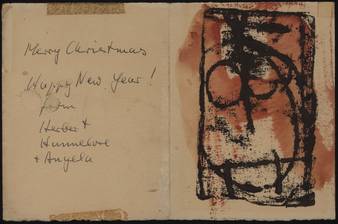 Merry Christmas
Happy New Year!
from
Herbert
Hannelore
+ Angela